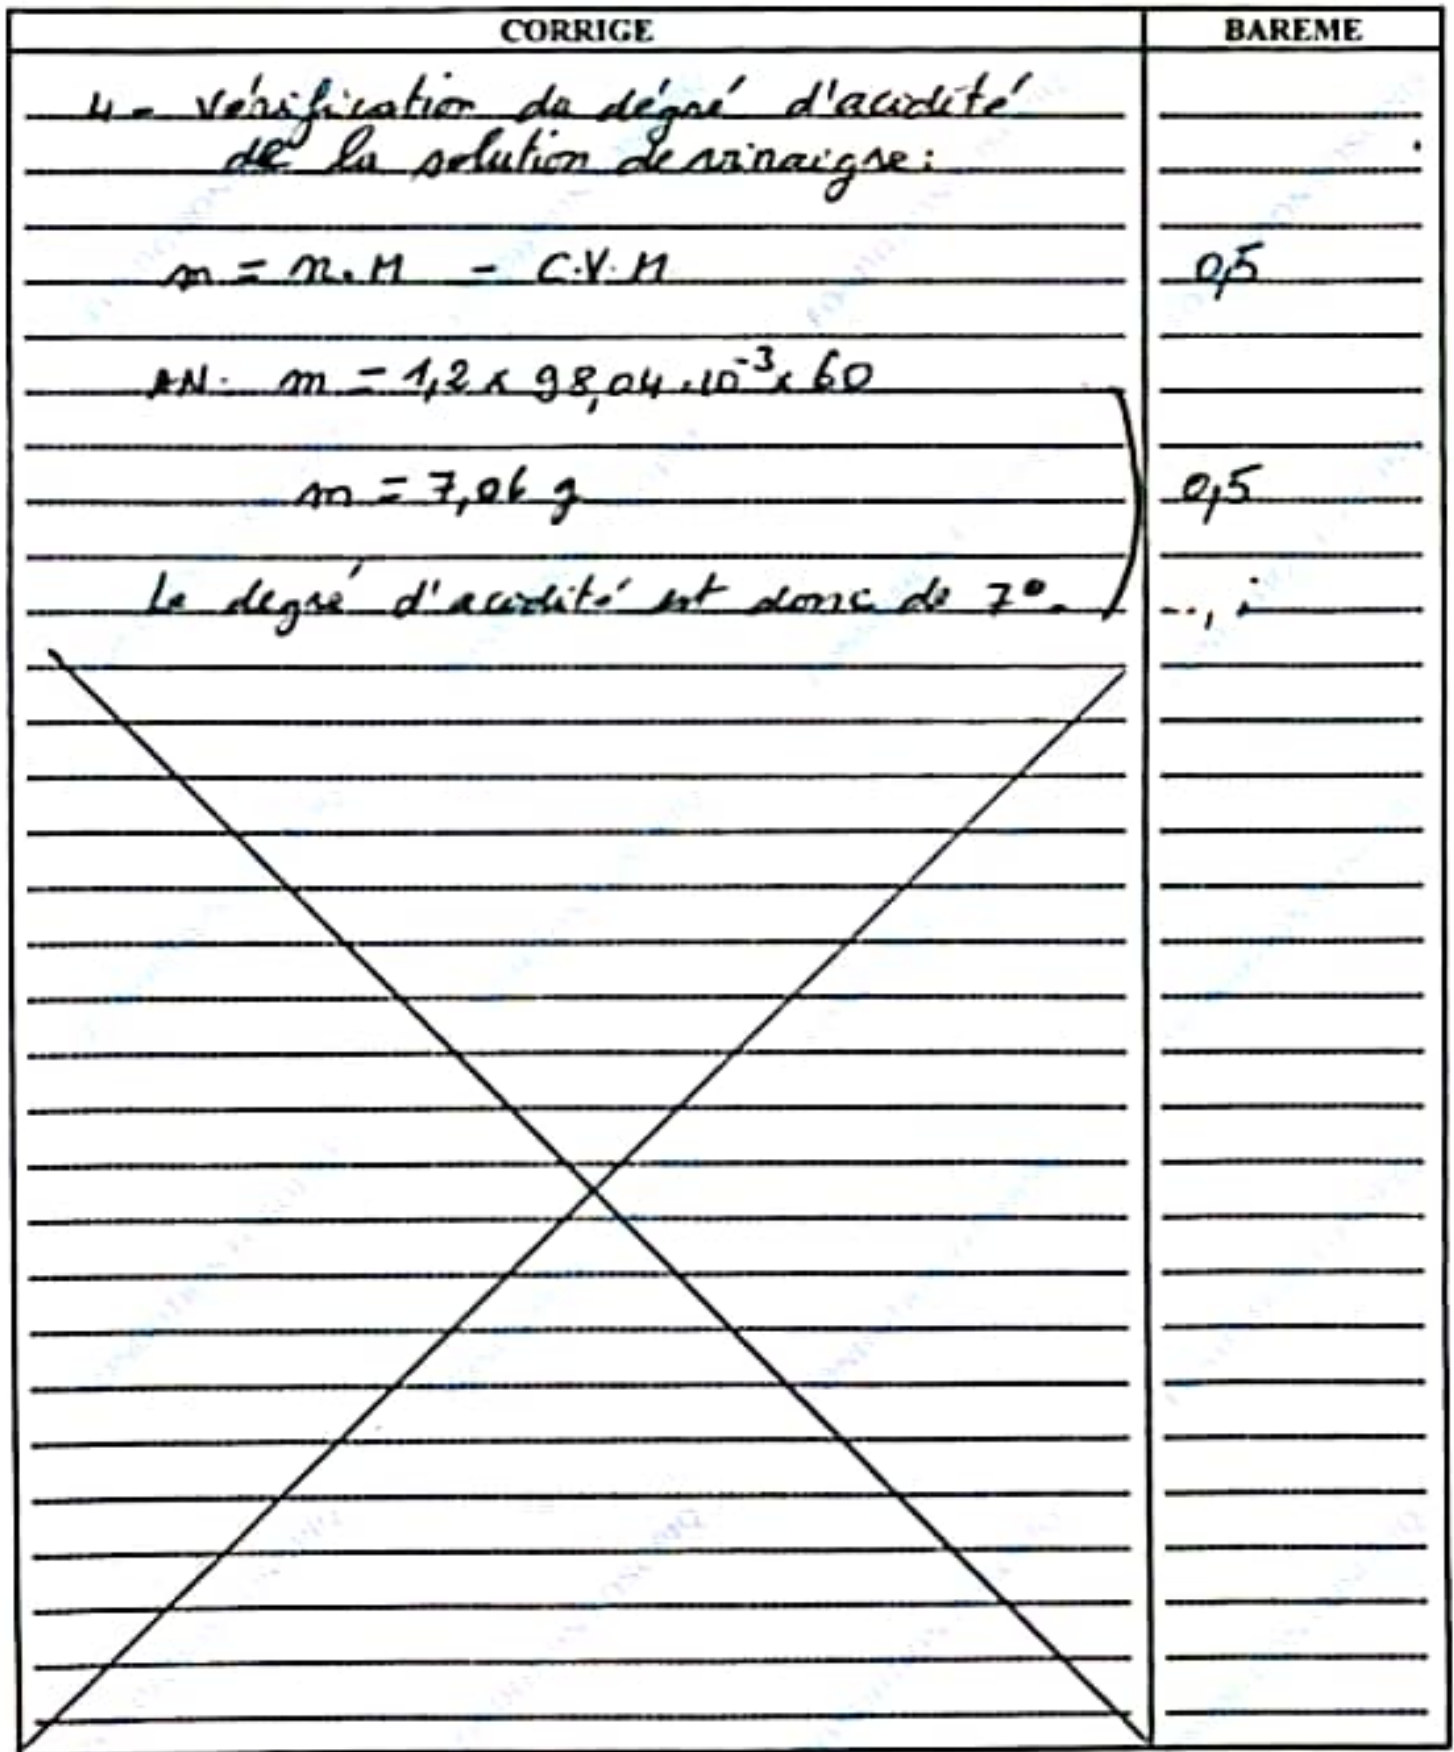 CORRIGE
BAREME
4- Vérification du dégré d'acidité
de la solution de vinaigre:
m = n.M = C.V.M
0,5
AN: m = 1,2 x 98,04.10⁻³ x 60
m = 7,06 g
0,5
Le degré d'acidité est donc de 7°.